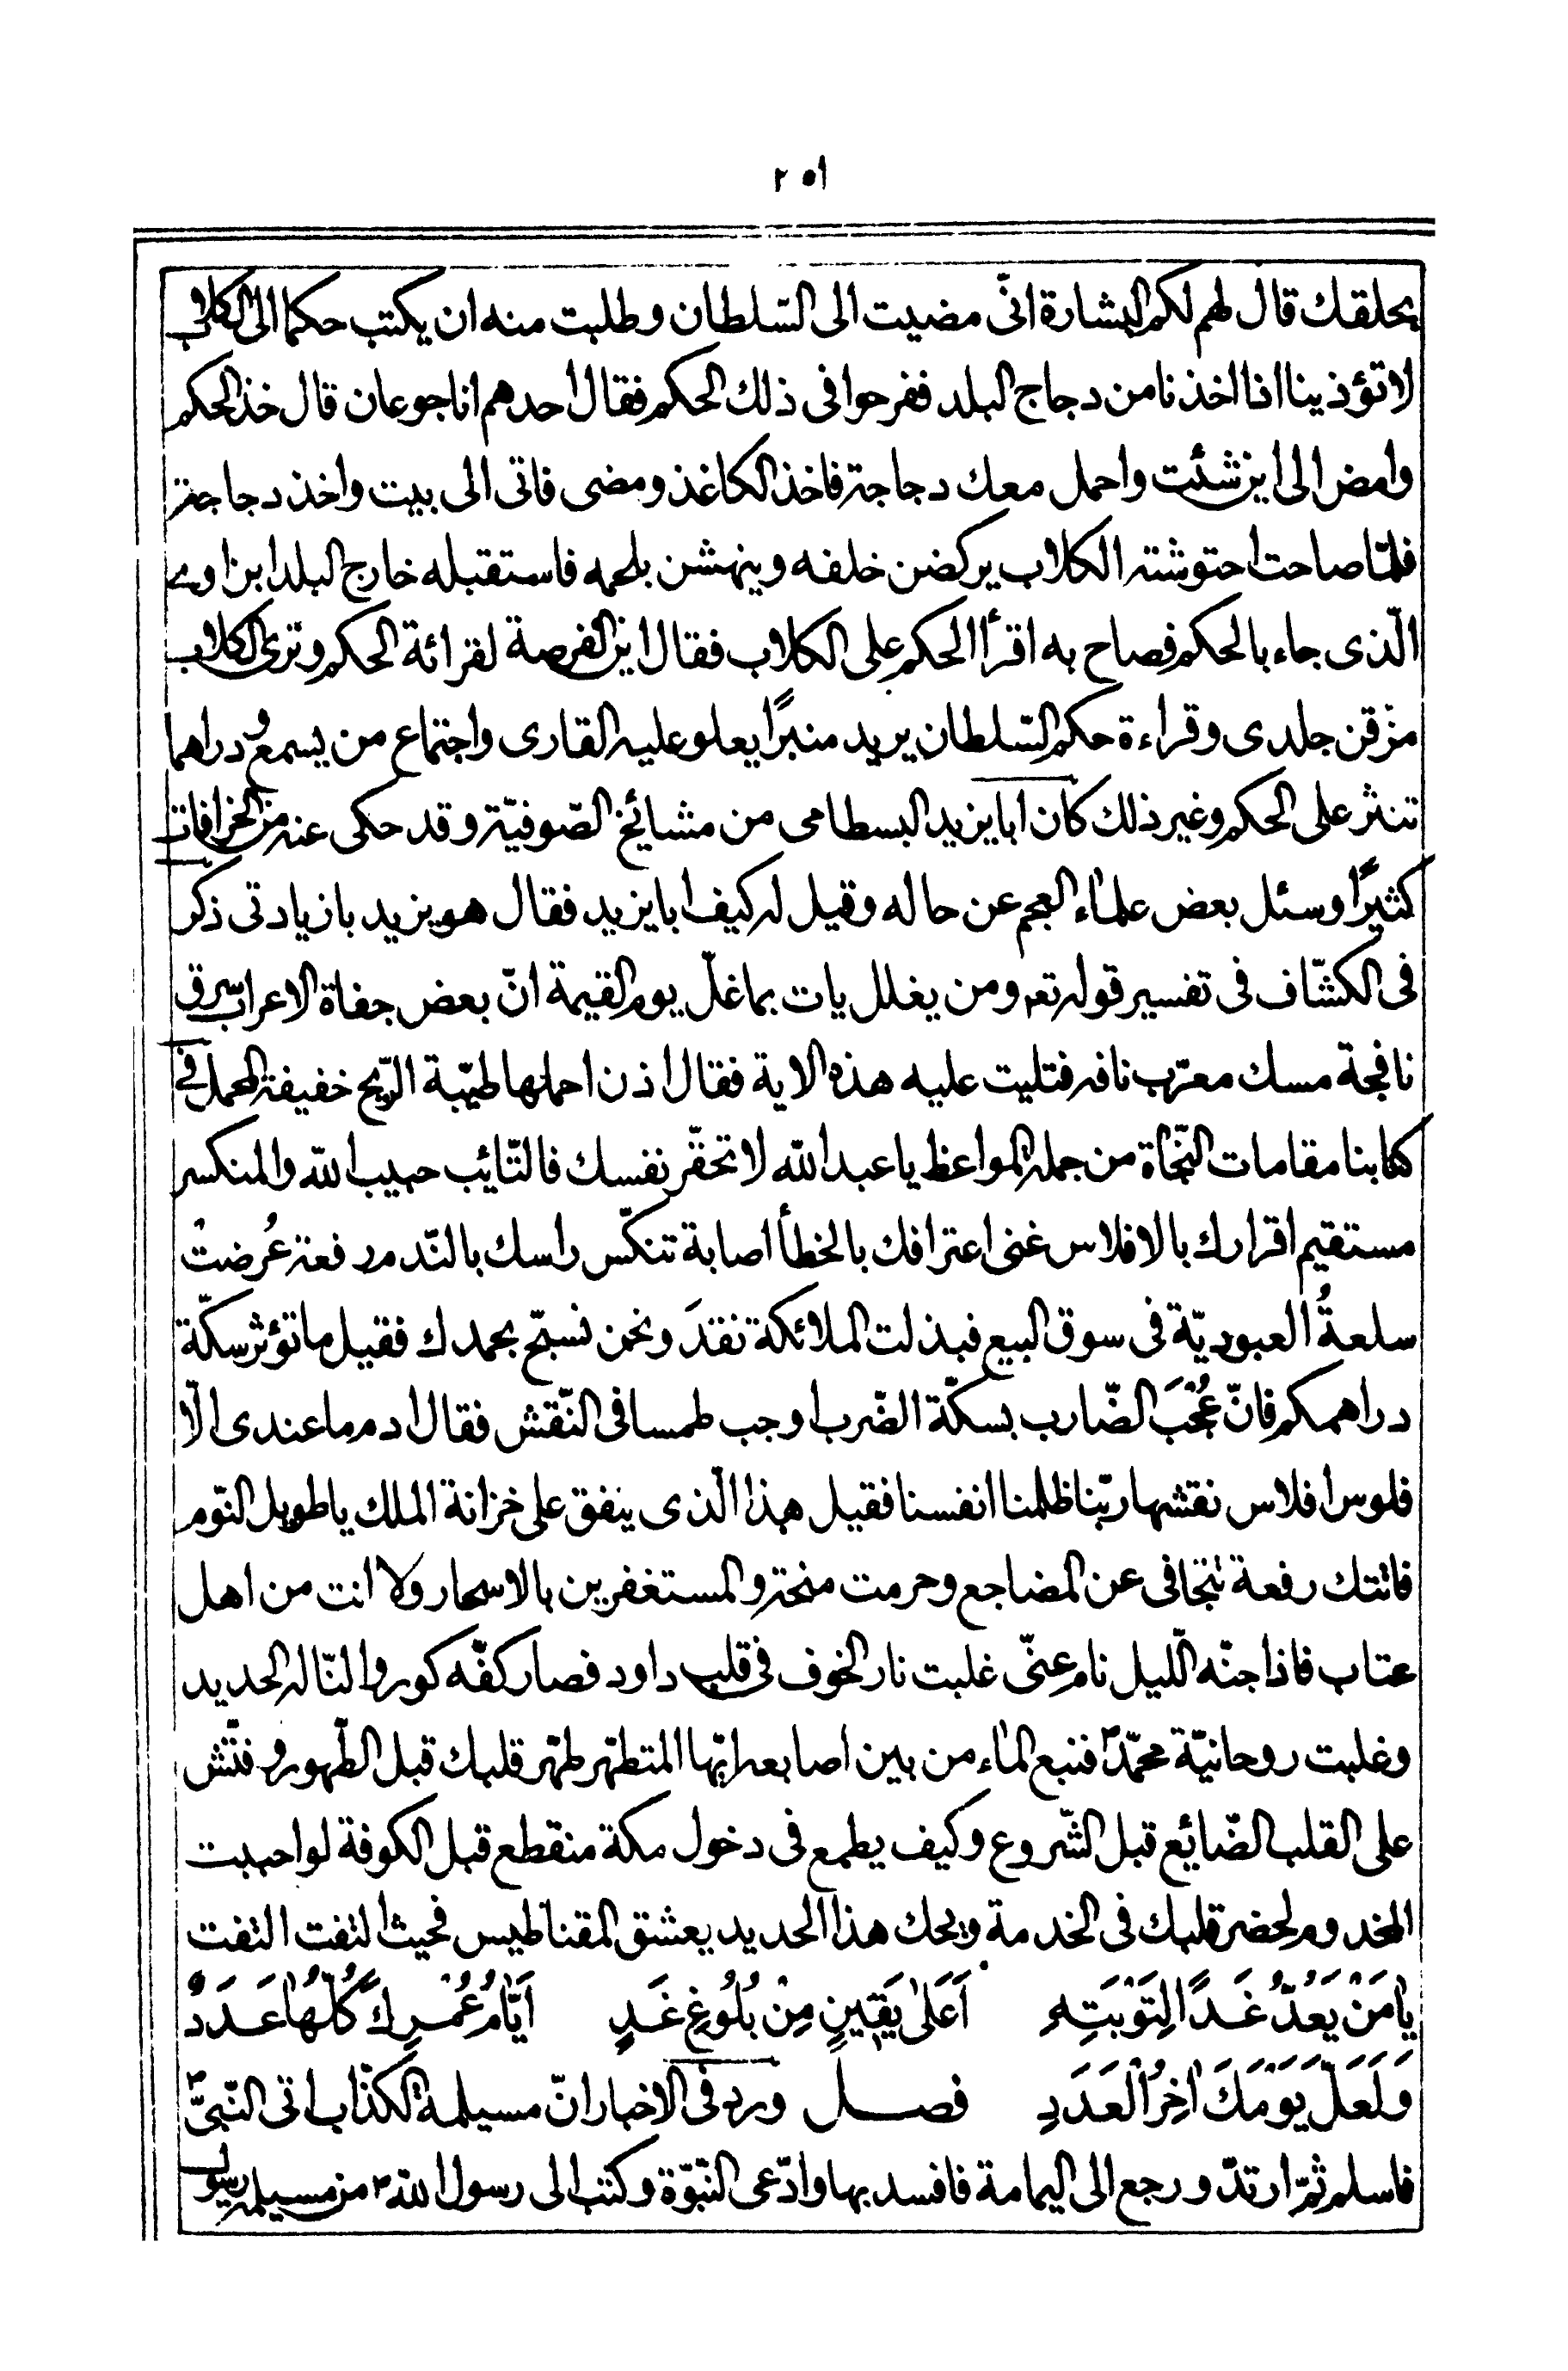 ٢٥١
بحلقك قال لهم لكم البشارة انّى مضيت الى السّلطان وطلبت منه ان يكتب حكما الى الكلاب
لا تؤذينا اذا اخذنا من دجاج البلد ففرحوا فى ذلك الحكم فقال احدهم انا جوعان قال خذ الحكم
وامض الى اين شئت واحمل معك دجاجة فاخذ الكاغذ ومضى فاتى الى بيت واخذ دجاجة
فلمّا صاحت احتوشته الكلاب يركضن خلفه وينهشن بلحمه فاستقبله خارج البلد ابن اوى
الّذى جاء بالحكم فصاح به اقرأ الحكم على الكلاب فقال اين الفرصة لقرائة الحكم وترى الكلاب
مزقن جلدى وقراءة حكم السّلطان يريد منبرًا يعلو عليه القارى واجتماع من يسمع ودراهما
تنثر على الحكم وغير ذلك كان ابا يزيد البسطامى من مشائخ الصّوفيّة وقد حكى عنه من الخرافات
كثيرًا وسئل بعض علماء العجم عن حاله وقيل له كيف ابا يزيد فقال هو يزيد با زيادتى ذكر
فى الكشّاف فى تفسير قوله تعه ومن يغلل يات بما غلّ يوم القيمة انّ بعض جفاة الاعراب سرق
نافجة مسك فتليت عليه هذه الاية فقال اذن احملها طيّبة الرّيح خفيفة المحمل فى
كتابنا مقامات النّجاة من جملة المواعظ يا عبد الله لا تحقّر نفسك فالتّايب حبيب الله والمنكسر
مستقيم اقرارك بالافلاس غنى اعترافك بالخطأ اصابة تنكّس راسك بالنّدم رفعة عُرضتْ
سلعةُ العبوديّة فى سوق البيع فبذلت الملائكة نقدَ ونحن نسبّح بحمدك فقيل ما تؤثر سكّة
دراهمكم فانّ عُجْبَ الضّارب بسكّة الضّرب اوجب طمسا فى النّقش فقال ادم ما عندى الّا
فلوس افلاس نقشها ربّنا ظلمنا انفسنا فقيل هذا الّذى ينفق على خزانة الملك يا طويل النّوم
فاتتك رفعة تتجافى عن المضاجع وحرمت منحة والمستغفرين بالاسحار ولا انت من اهل
عتاب فاذا جنّه اللّيل نام عنّى غلبت نار الخوف فى قلب داود فصار كفّه كور والنّا له الحديد
وغلبت روحانيّة محمّد ص فنبع الماء من بين اصابعه ايّها المتطهّر طهّر قلبك قبل الطّهور وفتّش
على القلب الضّائع قبل الشّروع وكيف يطمع فى دخول مكة منقطع قبل الكوفة لو احببت
المخدوم لحضر قلبك فى الخدمة ويحك هذا الحديد يعشق المقناطيس فحيث التفت التفت
يا مَنْ يَعُدُّ غَدًا لِتَوْبَتِهِ اَعَلى يَقِينٍ مِنْ بُلُوغِ غَدٍ اَيّامُ عُمْرِكَ كُلُّها عَدَدٌ
وَلَعَلَّ يَوْمَكَ اخِرُ الْعَدَدِ فصل ورد فى الاخبار انّ مسيلمة الكذّاب اتى النّبىّ ص
فاسلم ثمّ ارتدّ ورجع الى اليمامة فافسد بها وادّعى النّبوّة وكتب الى رسول الله ص من مسيلمة رسول